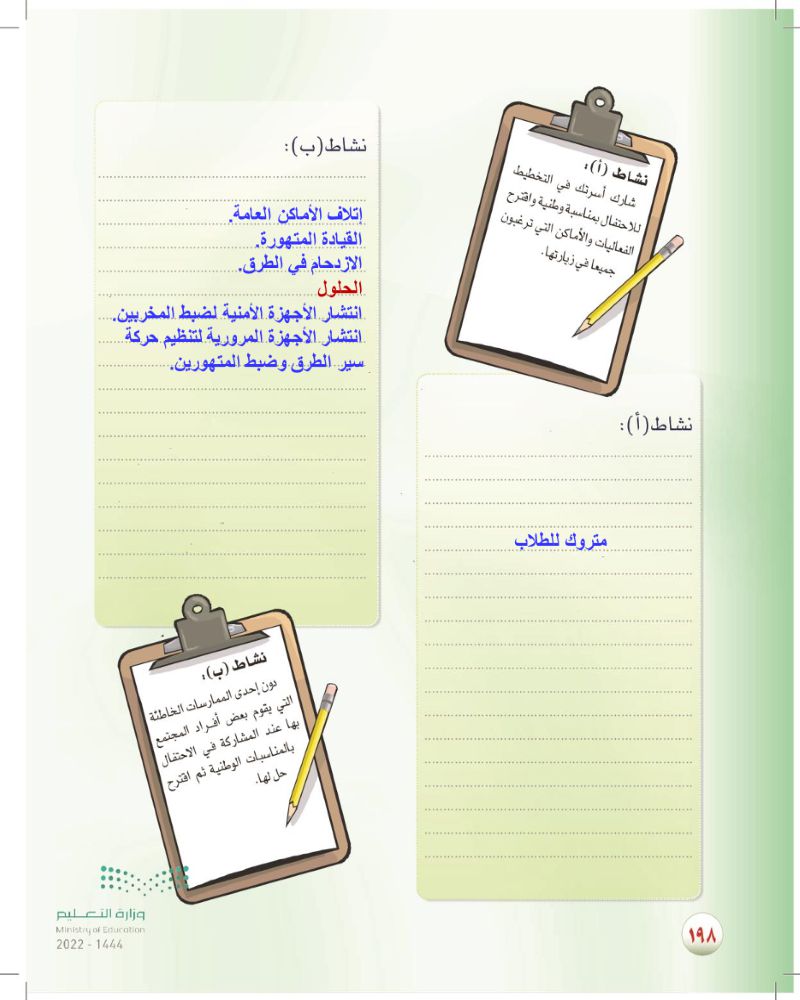 نشاط (أ):
شارك أسرتك في التخطيط
للاحتفال بمناسبة وطنية واقترح
الفعاليات والأماكن التي ترغبون
جميعا في زيارتها.
نشاط(أ):
متروك للطلاب
نشاط (ب):
دون إحدى الممارسات الخاطئة
التي يقوم بعض أفراد المجتمع
بها عند المشاركة في الاحتفال
بالمناسبات الوطنية ثم اقترح
حل لها.
نشاط(ب):
إتلاف الأماكن العامة.
القيادة المتهورة.
الازدحام في الطرق.
الحلول
انتشار الأجهزة الأمنية لضبط المخربين.
انتشار الأجهزة المرورية لتنظيم حركة
سير الطرق وضبط المتهورين.
وزارة التعليم
Ministry of Education
2022 - 1444
١٩٨